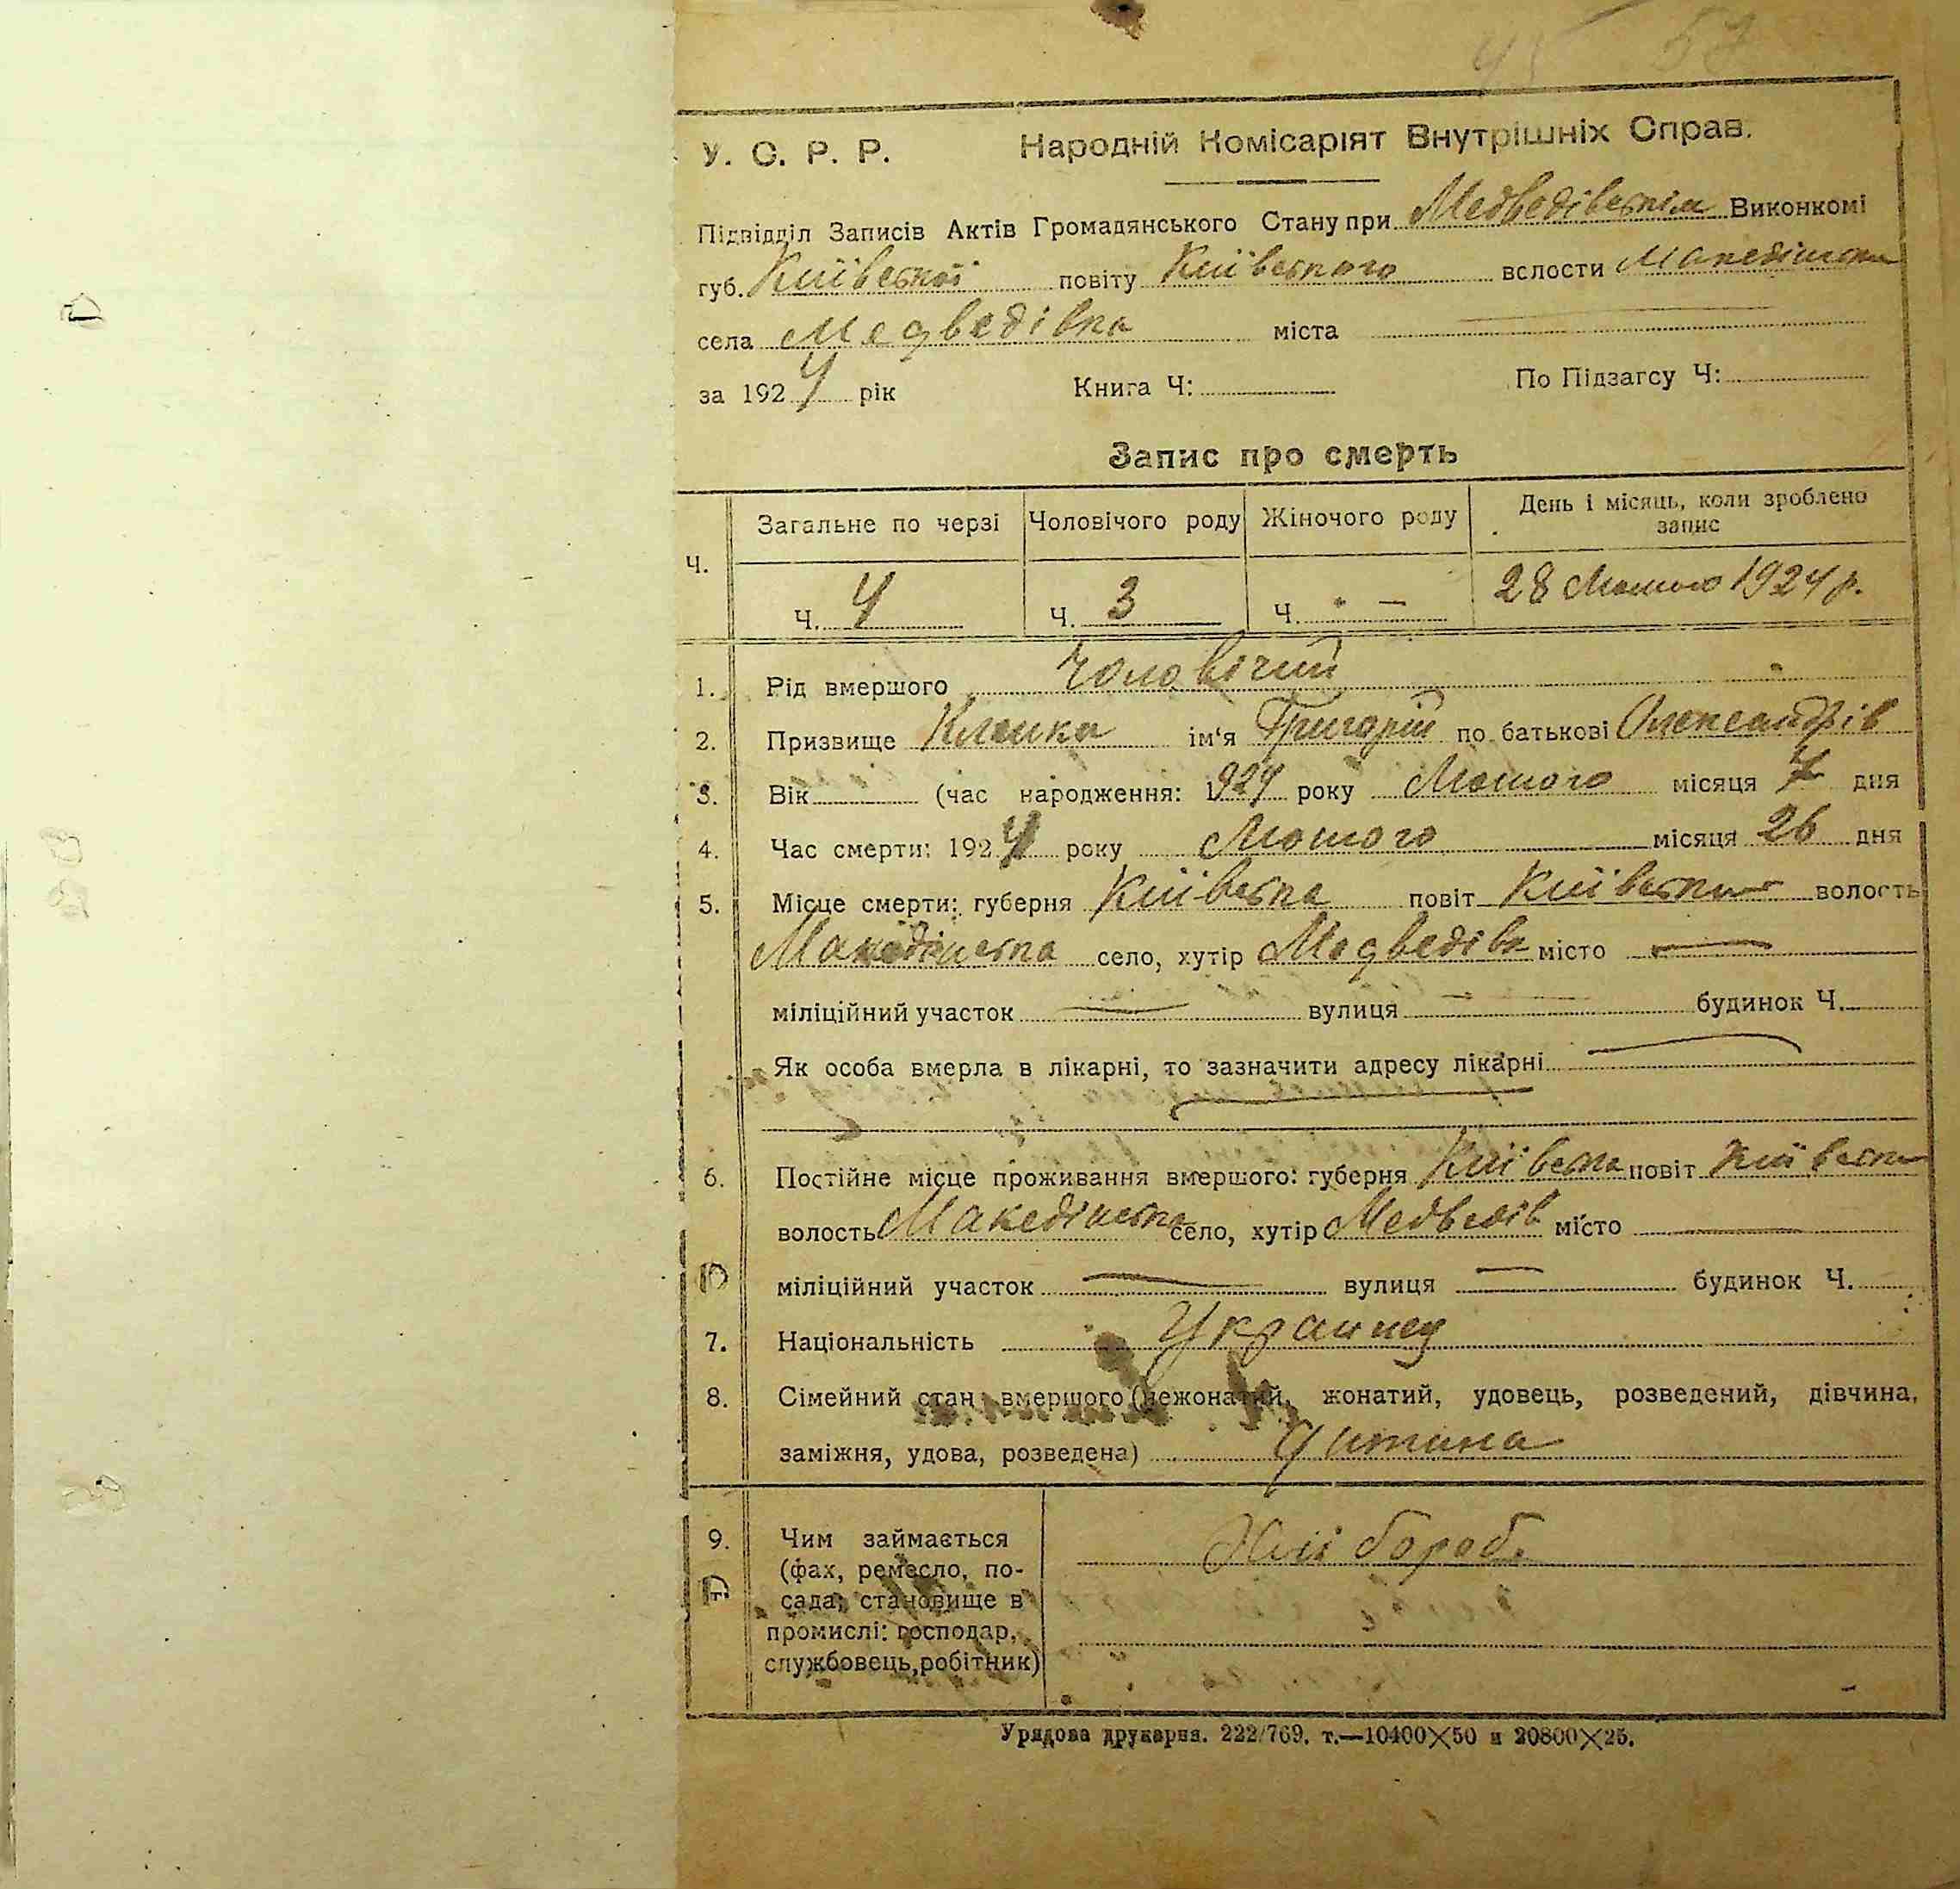 45 57
У. С. Р. Р. Народній Комісаріят Внутрішніх Справ.
Підвідділ Записів Актів Громадянського Стану при Медведівськім Виконкомі
губ. Київської повіту Київського волости
села Медведівка міста
за 1924 рік Книга Ч: По Підзагсу Ч:
Запис про смерть
Ч. Загальне по черзі Чоловічого роду Жіночого роду День і місяць, коли зроблено
запис
Ч. 4 Ч. 3 Ч. — 28 Лютого 1924 р.
1. Рід вмершого Чоловічий
2. Призвище ім'я Григорій по батькові Олександрів
3. Вік (час народження: 1924 року Лютого місяця 7 дня
4. Час смерти: 1924 року Лютого місяця 26 дня
5. Місце смерти: губерня Київська повіт волость
село, хутір Медведівк місто —
міліційний участок — вулиця — будинок Ч.
Як особа вмерла в лікарні, то зазначити адресу лікарні
6. Постійне місце проживання вмершого: губерня Київська повіт
волость Македінська село, хутір Медведів місто —
міліційний участок — вулиця — будинок Ч.
7. Національність Украинец
8. Сімейний стан вмершого (нежонатий, жонатий, удовець, розведений, дівчина,
заміжня, удова, розведена) Дитина
9. Чим займається Хлібороб.
(фах, ремесло, по-
сада; становище в
промислі: господар,
службовець, робітник)
Урядова друкарня. 222/769. т.—10400×50 и 20800×25.